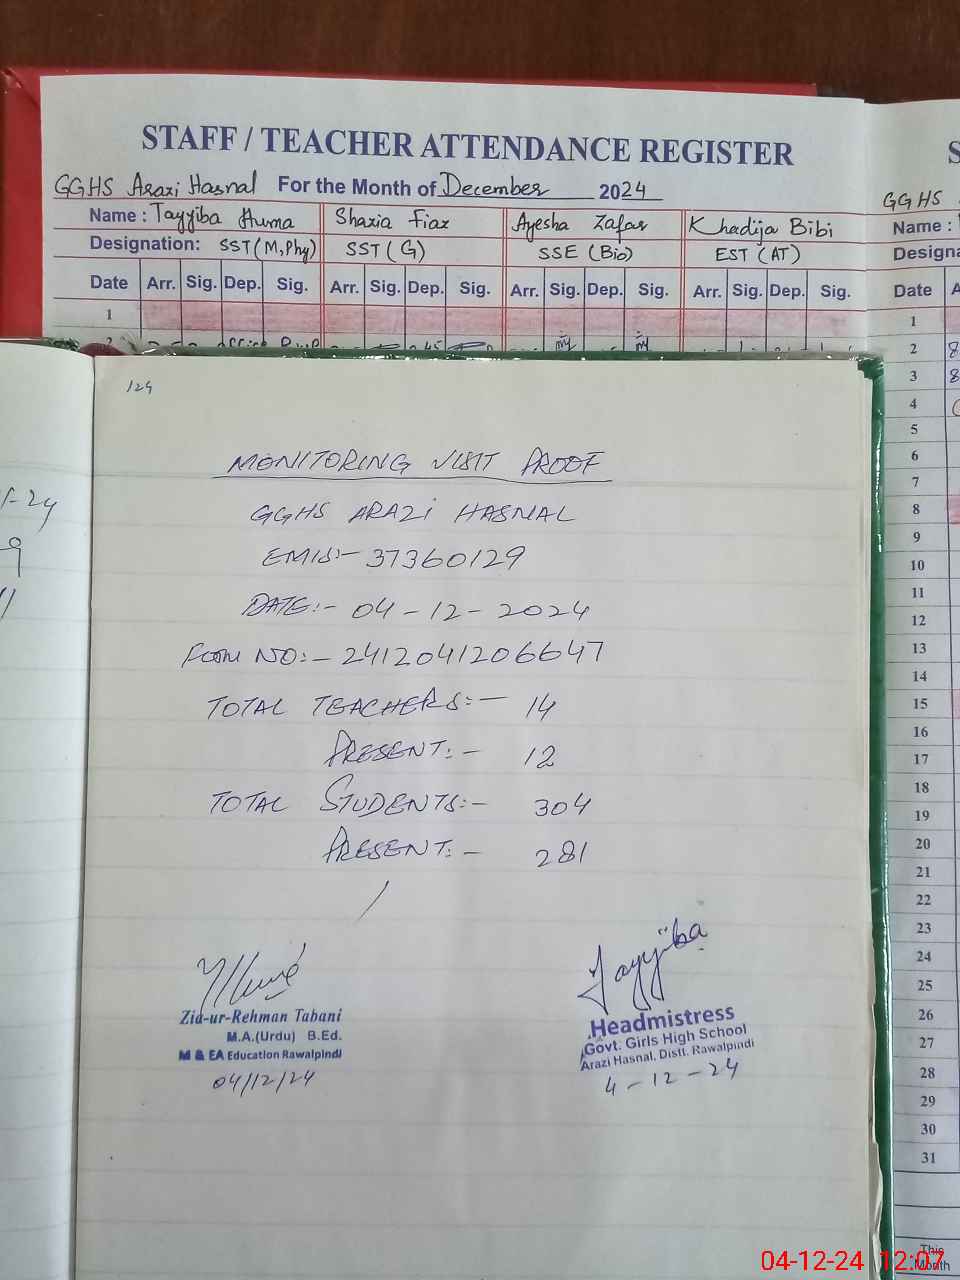 STAFF / TEACHER ATTENDANCE REGISTER
GGHS Arazi Hasnal For the Month of December 2024
Name : Tayyiba Huma Shazia Fiaz Ayesha Zafar Khadija Bibi
Designation: SST (M,Phy) SST (G) SSE (Bio) EST (AT)
Date Arr. Sig. Dep. Sig. Arr. Sig. Dep. Sig. Arr. Sig. Dep. Sig. Arr. Sig. Dep. Sig.
1
S
GGHS
Name :
Designa
Date A
1
2 8
3 8
4
5
6
7
8
9
10
11
12
13
14
15
16
17
18
19
20
21
22
23
24
25
26
27
28
29
30
31
This
Month
124
MONITORING VISIT PROOF
GGHS ARAZI HASNAL
EMIS:- 37360129
DATE:- 04-12-2024
FORM NO:- 2412041206647
TOTAL TEACHERS:- 14
PRESENT:- 12
TOTAL STUDENTS:- 304
PRESENT:- 281
Zia-ur-Rehman Tabani
M.A.(Urdu) B.Ed.
M & EA Education Rawalpindi
04/12/24
Tayyiba
Headmistress
Govt. Girls High School
Arazi Hasnal, Distt. Rawalpindi
4-12-24
04-12-24 12:07